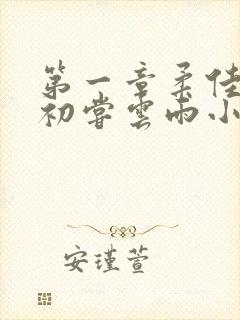 第一章柔佳
初尝雲雨小
安瑾萱